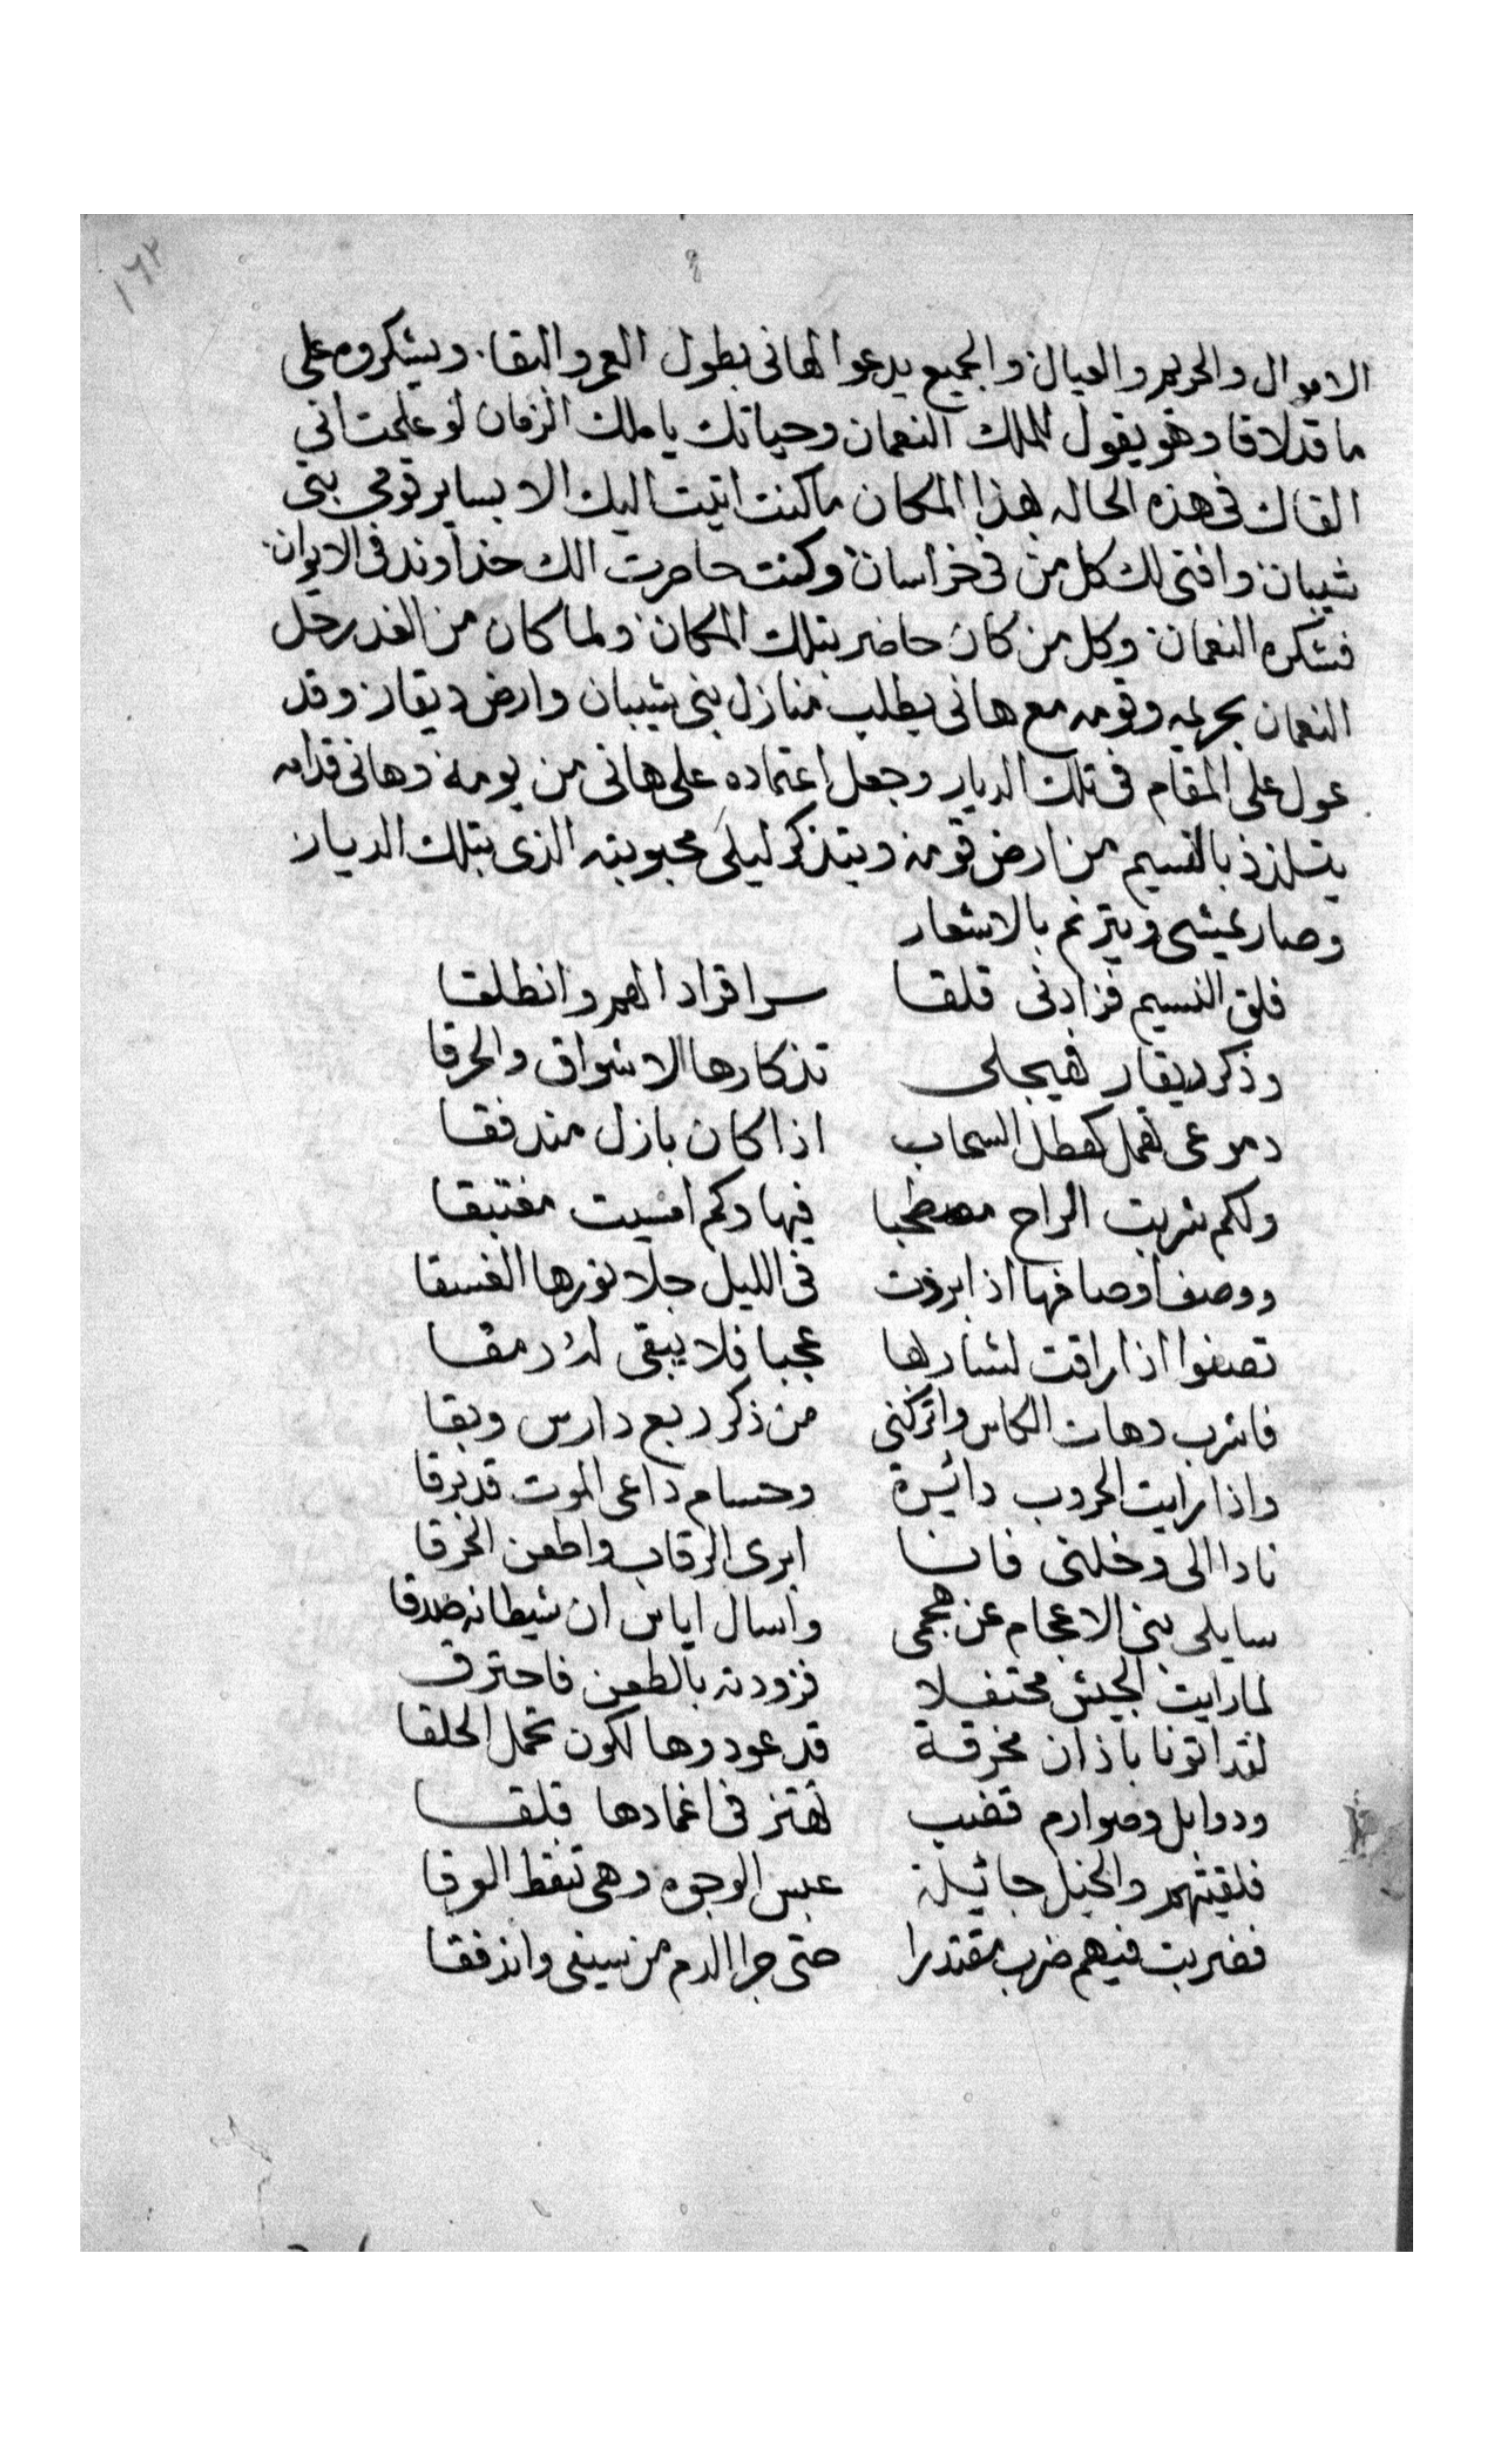 ١٦٢
الاموال والحريم والعيال والجميع يدعوا لهانى بطول العمر والبقا. ويشكروه على
ما قد لاقا وهو يقول للملك النعمان وحياتك يا ملك الزمان لو علمت انى
القاك فى هذه الحاله بهذا المكان ما كنت اتيت اليك الا بساير قومى بنى
شيبان وافنى لك كل من فى خراسان وكنت حاصرت الملك خداوند فى الايوان
فشكره النعمان وكل من كان حاضر بتلك المكان ولما كان من الغد رحل
النعمان بحريمه وقومه مع هانى يطلب منازل بنى شيبان وارض ديقار وقد
عول على المقام فى تلك الديار وجعل اعتماده على هانى من يومه وهانى قدامه
يتلذذ بالنسيم من ارض قومه ويتذكر ليلى محبوبته الذى بتلك الديار
وصار يمشى ويترنم بالاشعار
قلق النسيم فزادنى قلقا سرا فزاد الهم وانطلقا
وذكر ديقار فهيجلى تذكارها الاشواق والحرقا
دموعى تهمل كهطل السحاب اذا كان بازل مندفقا
ولكم شربت الراح مصطحبا فيها وكم امسيت مغتبقا
ووصف اوصافها اذا برزت فى الليل جلا نورها الغسقا
تصفوا اذا راقت لشاربها عجبا فلا يبقى له رمقا
فاشرب وهات الكاس واتركنى من ذكر ربع دارس وبقا
واذا رايت الحروب دائرة وحسام داعى الموت قد برقا
نادا الى وخلنى فانا ابرى الرقاب واطعن الخرقا
سايلى بنى الاعجام عن هجمى واسال اياس ان شيطانه صدقا
لما رايت الجيش محتفلا فزودته بالطعن فاحترق
لقد اتونا باذان مخرقة قد عودوها لكون تحمل الحلقا
وذوابل وصوارم قضب تهتز فى اغمادها قلقا
فلقيتهم والخيل جائيلة عبس الوجوه وهى تنقط العرقا
فضربت فيهم ضرب مقتدرا حتى جرا الدم من سيفى واندفقا